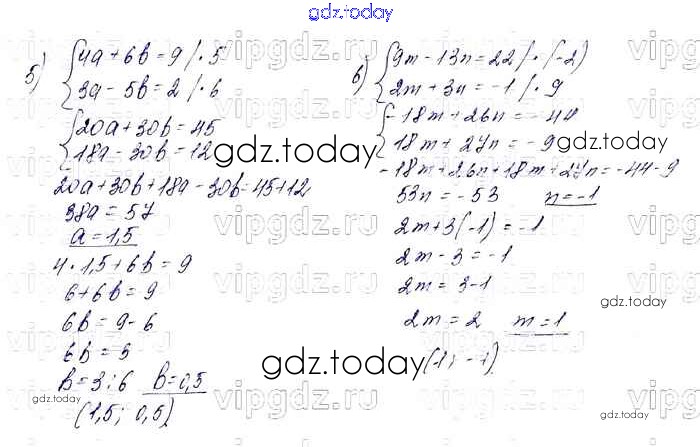 gdz.today
5) { 4a + 6b = 9 / · 5
3a - 5b = 2 / · 6
{ 20a + 30b = 45
18a - 30b = 12
20a + 30b + 18a - 30b = 45 + 12
38a = 57
a = 1,5
4 · 1,5 + 6b = 9
6 + 6b = 9
6b = 9 - 6
6b = 3
b = 3 : 6 b = 0,5
(1,5; 0,5)
6) { 9m - 13n = 22 / · (-2)
2m + 3n = -1 / · 9
{ -18m + 26n = -44
18m + 27n = -9
-18m + 26n + 18m + 27n = -44 - 9
53n = -53 n = -1
2m + 3(-1) = -1
2m - 3 = -1
2m = 3 - 1
2m = 2 m = 1
(1; -1)
gdz.today
gdz.today
gdz.today
gdz.today
gdz.today
gdz.today
vipgdz.ru
vipgdz.ru
vipgdz.ru
vipgdz.ru
vipgdz.ru
vipgdz.ru
vipgdz.ru
vipgdz.ru
vipgdz.ru
vipgdz.ru
vipgdz.ru
vipgdz.ru